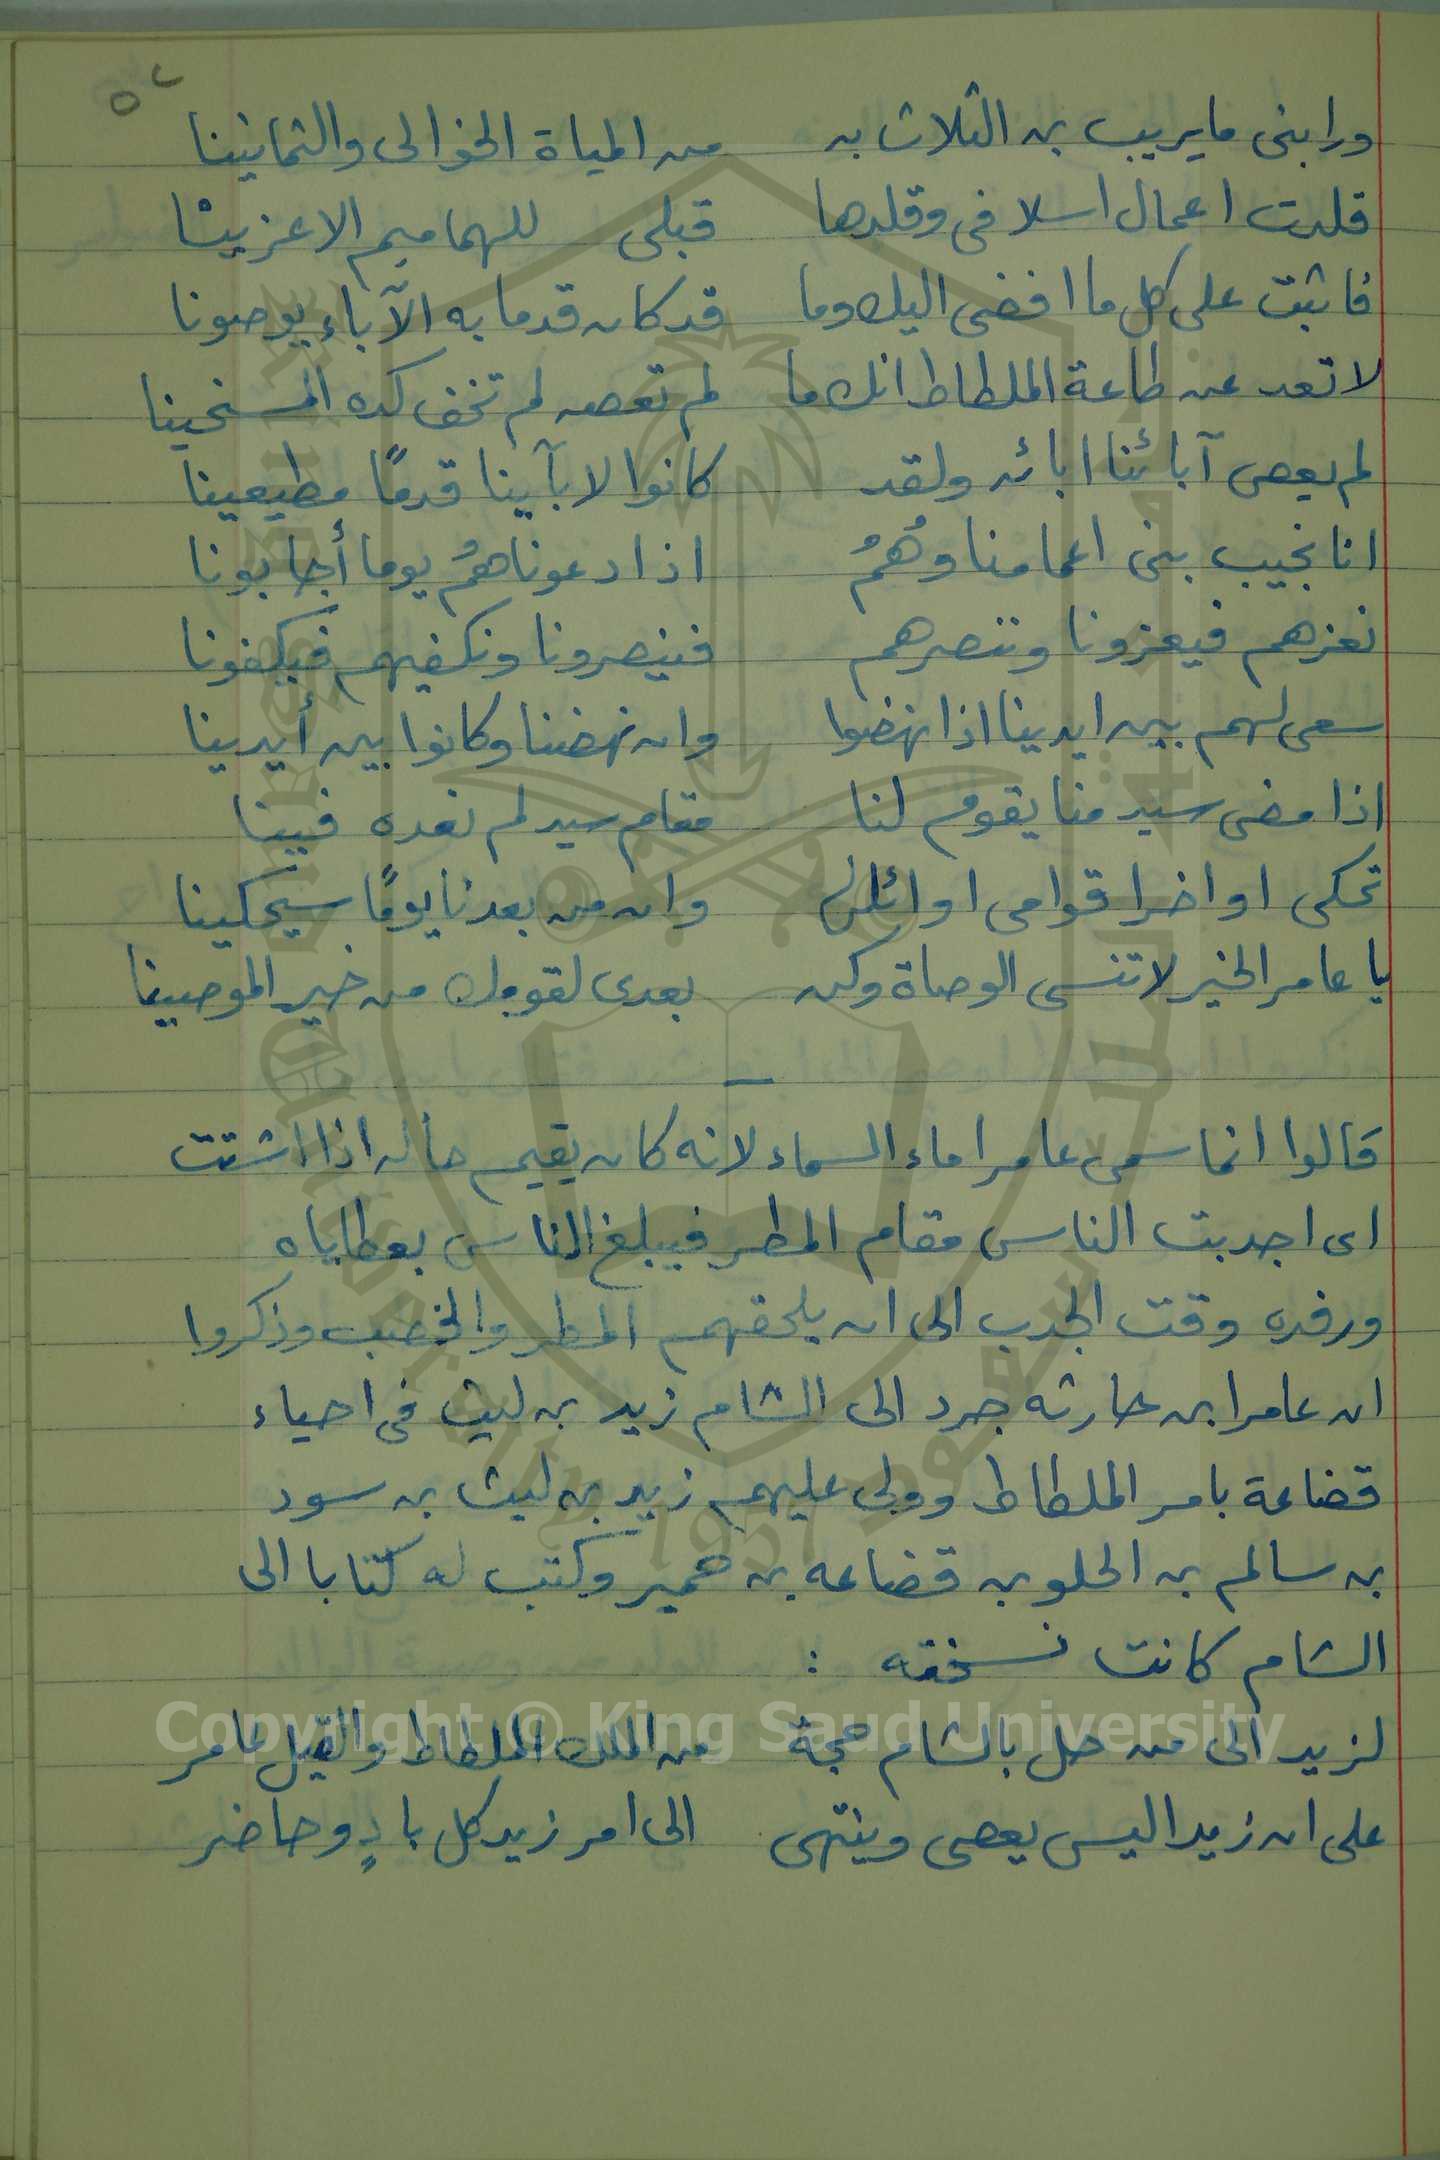 ٥٢
ورابنى مايريب بن الثلاث به من المياة الخوالى والثمانينا
قلدت اعمال اسلافى وقلدها قبلى للهماميم الاعزينا
فاثبت على كل ما افضى اليك وما قد كان قدما به الآباء يوصونا
لا تعد عن طاعة الملطاط انك ما لم تعصه لم تخف كده المسنحينا
لم يعص آبائنا ابائه ولقد كانوا لابآينا قدمًا مطيعينا
انا نجيب بنى اعمامنا وهُمُ اذا دعوناهمُ يوما أجابونا
نعزهم فيعزونا وننصرهم فينصرونا ونكفيهم فيكفونا
سعى لهم بين ايدينا اذا نهضوا وان نهضنا وكانوا بين أيدينا
اذا مضى سيد منا يقوم لنا مقام سيد لم نعده فينا
تحكى اواخر اقوامى اوائلها وان من بعدنا يومًا سيحكينا
يا عامر الخير لا تنسى الوصاة وكن بعدى لقومك من خير الموصينا
قالوا انما سمى عامرا ماء السماء لانه كان يقيم ماله اذا اشتت
اى اجدبت الناس مقام المطر فيبلغ الناس بعطاياه
ورفده وقت الجدب الى ان يلحقهم المطر والخصب وذكروا
ان عامرا بن حارثه جرد الى الشام زيد بن ليث فى احياء
قضاعة بامر الملطاط وولى عليهم زيد بن ليث بن سود
بن سالم بن الحلو بن قضاعه بن حمير وكتب له كتابا الى
الشام كانت نسخته :
لزيد الى من حل بالشام حجة من الملك الملطاط والقيل عامر
على ان زيدا ليس يعصى وينتهى الى امر زيد كل بادٍ وحاضر
Copyright © King Saud University